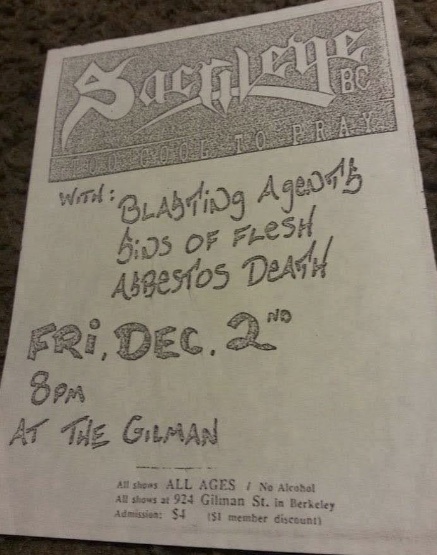 Sacrilege
BC
TOO COOL TO PRAY
WITH: BLASTING AGENTS
SINS OF FLESH
ASBESTOS DEATH
FRI, DEC. 2ND
8PM
AT THE GILMAN
All shows ALL AGES / No Alcohol
All shows at 924 Gilman St. in Berkeley
Admission: $4 ($1 member discount)